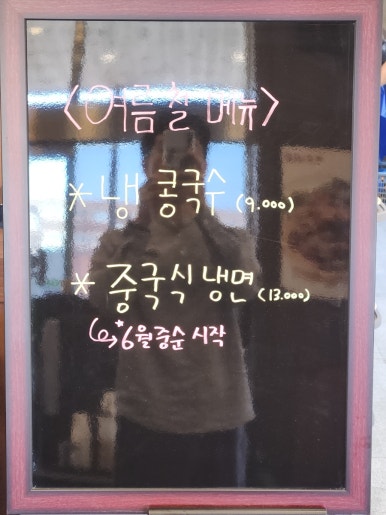 <여름철 메뉴>
* 냉 콩국수 (9.000)
* 중국식 냉면 (13.000)
*6월 중순 시작